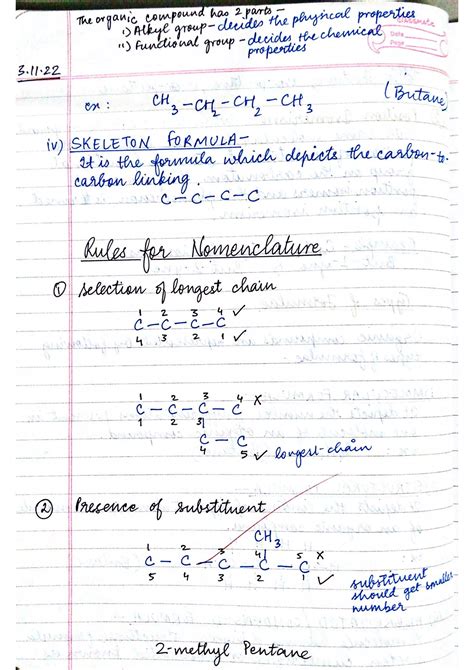 The organic compound has 2 parts -
i) Alkyl group - decides the physical properties
ii) Functional group - decides the chemical
properties
classmate
Date
Page
3.11.22
ex: CH3-CH2-CH2-CH3 (Butane)
iv) SKELETON FORMULA-
It is the formula which depicts the carbon-to-
carbon linking.
C-C-C-C
Rules for Nomenclature
① Selection of longest chain
1 2 3 4 ✓
C-C-C-C
4 3 2 1 ✓
1 2 3 4 X
C-C-C-C
1 2 3|
C-C
4 5 ✓ longest-chain
② Presence of substituent
CH3
1 2 3 4| 5 X
C-C-C-C-C
5 4 3 2 1 ✓
substituent
should get smaller
number
2-methyl Pentane